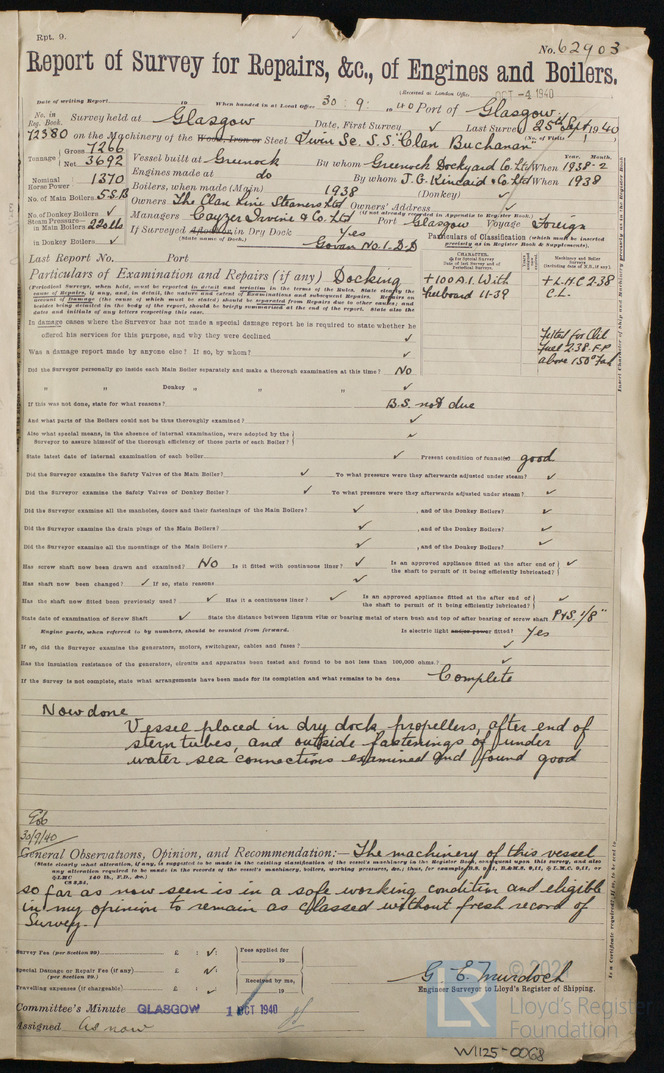 Rpt. 9.
No. 62903
Report of Survey for Repairs, &c., of Engines and Boilers.
(Received at London Office OCT -4 1940
Date of writing Report 19 When handed in at Local Office 30 : 9 : 1940 Port of Glasgow
No. in Reg. Book. Survey held at Glasgow Date, First Survey ✓ Last Survey 25th Sept 1940
72380 on the Machinery of the Wood, Iron or Steel Twin Sc. S.S. "Clan Buchanan" (No. of Visits 1)
Tonnage Gross 7266
Net 3692
Vessel built at Greenock By whom Greenock Dockyard Co. Ltd When 1938-2
Year. Month.
Nominal Horse Power 1370 Engines made at do By whom J. G. Kincaid & Co. Ltd When 1938
No. of Main Boilers 5 S.B Boilers, when made (Main) 1938 (Donkey) ✓
No. of Donkey Boilers ✓ Owners The Clan Line Steamers Ltd Owners' Address ✓
(if not already recorded in Appendix to Register Book.)
Steam Pressure in Main Boilers 220 lbs Managers Cayzer Irvine & Co. Ltd Port Glasgow Voyage Foreign
in Donkey Boilers ✓ If Surveyed Afloat or in Dry Dock Yes
(State name of Dock.) Govan No. 1. D.D
Particulars of Classification (which must be inserted precisely as in Register Book & Supplements).
Last Report No. Port
Particulars of Examination and Repairs (if any) Docking
CHARACTER.
+100 A.1. With freeboard 11-39
+ L.M.C 2.38
C.L.
Fitted for Oil Fuel 2.38. F.P above 150° Fah
In damage cases where the Surveyor has not made a special damage report he is required to state whether he
offered his services for this purpose, and why they were declined ✓
Was a damage report made by anyone else? If so, by whom? ✓
Did the Surveyor personally go inside each Main Boiler separately and make a thorough examination at this time? No
" " Donkey " " " ✓
If this was not done, state for what reasons? B.S. not due
And what parts of the Boilers could not be thus thoroughly examined? ✓
Also what special means, in the absence of internal examination, were adopted by the
Surveyor to assure himself of the thorough efficiency of those parts of each Boiler? ✓
State latest date of internal examination of each boiler ✓ Present condition of funnel(s) good
Did the Surveyor examine the Safety Valves of the Main Boiler? ✓ To what pressure were they afterwards adjusted under steam? ✓
Did the Surveyor examine the Safety Valves of Donkey Boiler? ✓ To what pressure were they afterwards adjusted under steam? ✓
Did the Surveyor examine all the manholes, doors and their fastenings of the Main Boilers? ✓, and of the Donkey Boilers? ✓
Did the Surveyor examine the drain plugs of the Main Boilers? ✓, and of the Donkey Boilers? ✓
Did the Surveyor examine all the mountings of the Main Boilers? ✓, and of the Donkey Boilers? ✓
Has screw shaft now been drawn and examined? No Is it fitted with continuous liner? ✓ Is an approved appliance fitted at the after end of the shaft to permit of it being efficiently lubricated? ✓
Has shaft now been changed? ✓ If so, state reasons ✓
Has the shaft now fitted been previously used? ✓ Has it a continuous liner? ✓ Is an approved appliance fitted at the after end of the shaft to permit of it being efficiently lubricated? ✓
State date of examination of Screw Shaft ✓ State the distance between lignum vitæ or bearing metal of stern bush and top of after bearing of screw shaft P&S. 1/8"
Engine parts, when referred to by numbers, should be counted from forward. Is electric light and/or power fitted? Yes
If so, did the Surveyor examine the generators, motors, switchgear, cables and fuses? ✓
Has the insulation resistance of the generators, circuits and apparatus been tested and found to be not less than 100,000 ohms? ✓
If the Survey is not complete, state what arrangements have been made for its completion and what remains to be done Complete
Now done
Vessel placed in dry dock, propellers, after end of
stern tubes, and outside fastenings of under
water sea connections examined and found good
30/9/40
General Observations, Opinion, and Recommendation:— The machinery of this vessel
so far as now seen is in a safe working condition and eligible
in my opinion to remain as classed without fresh record of
Survey.
Survey Fee (per Section 29) £ : ✓ :
Special Damage or Repair Fee (if any) £ : ✓ :
(per Section 29.)
Travelling expenses (if chargeable) £ : ✓ :
Fees applied for
19
Received by me,
19
G. E. Murdoch
Engineer Surveyor to Lloyd's Register of Shipping.
Committee's Minute GLASGOW 1 OCT 1940
Assigned As now
LR
Lloyd's Register
Foundation
W1125-0068